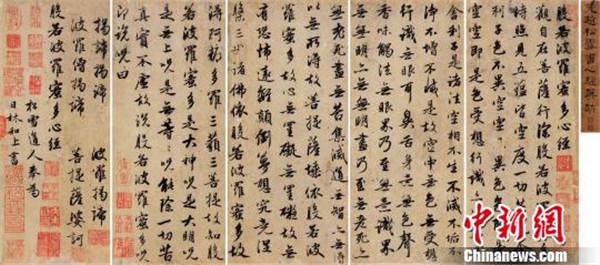 般若波羅蜜多心經
觀自在菩薩行深般若波羅
時照見五蘊皆空度一切苦
子色不異空空
空空即是色受想行識
舍利子是諸法空相不生不滅不垢不
淨不增不減是故空中無色無受想
行識無眼耳鼻舌身意無色聲
香味觸法無眼界乃至無意識界
無無明亦無無明盡乃至無老死亦
無老死盡無苦集滅道無智亦無得
以無所得故菩提薩埵依般若波
羅蜜多故心無罣礙無罣礙故無
有恐怖遠離顛倒夢想究竟涅
槃三世諸佛依般若波羅蜜多故
得阿耨多羅三藐三菩提故知般
若波羅蜜多是大神咒是大明咒
是無上咒是無等等咒能除一切苦
真實不虛故說般若波羅蜜多咒
即說咒曰
揭諦揭諦 波羅揭諦
波羅僧揭諦 菩提薩婆訶
般若波羅蜜多心經
松雪道人奉為
日林和上書
中新网